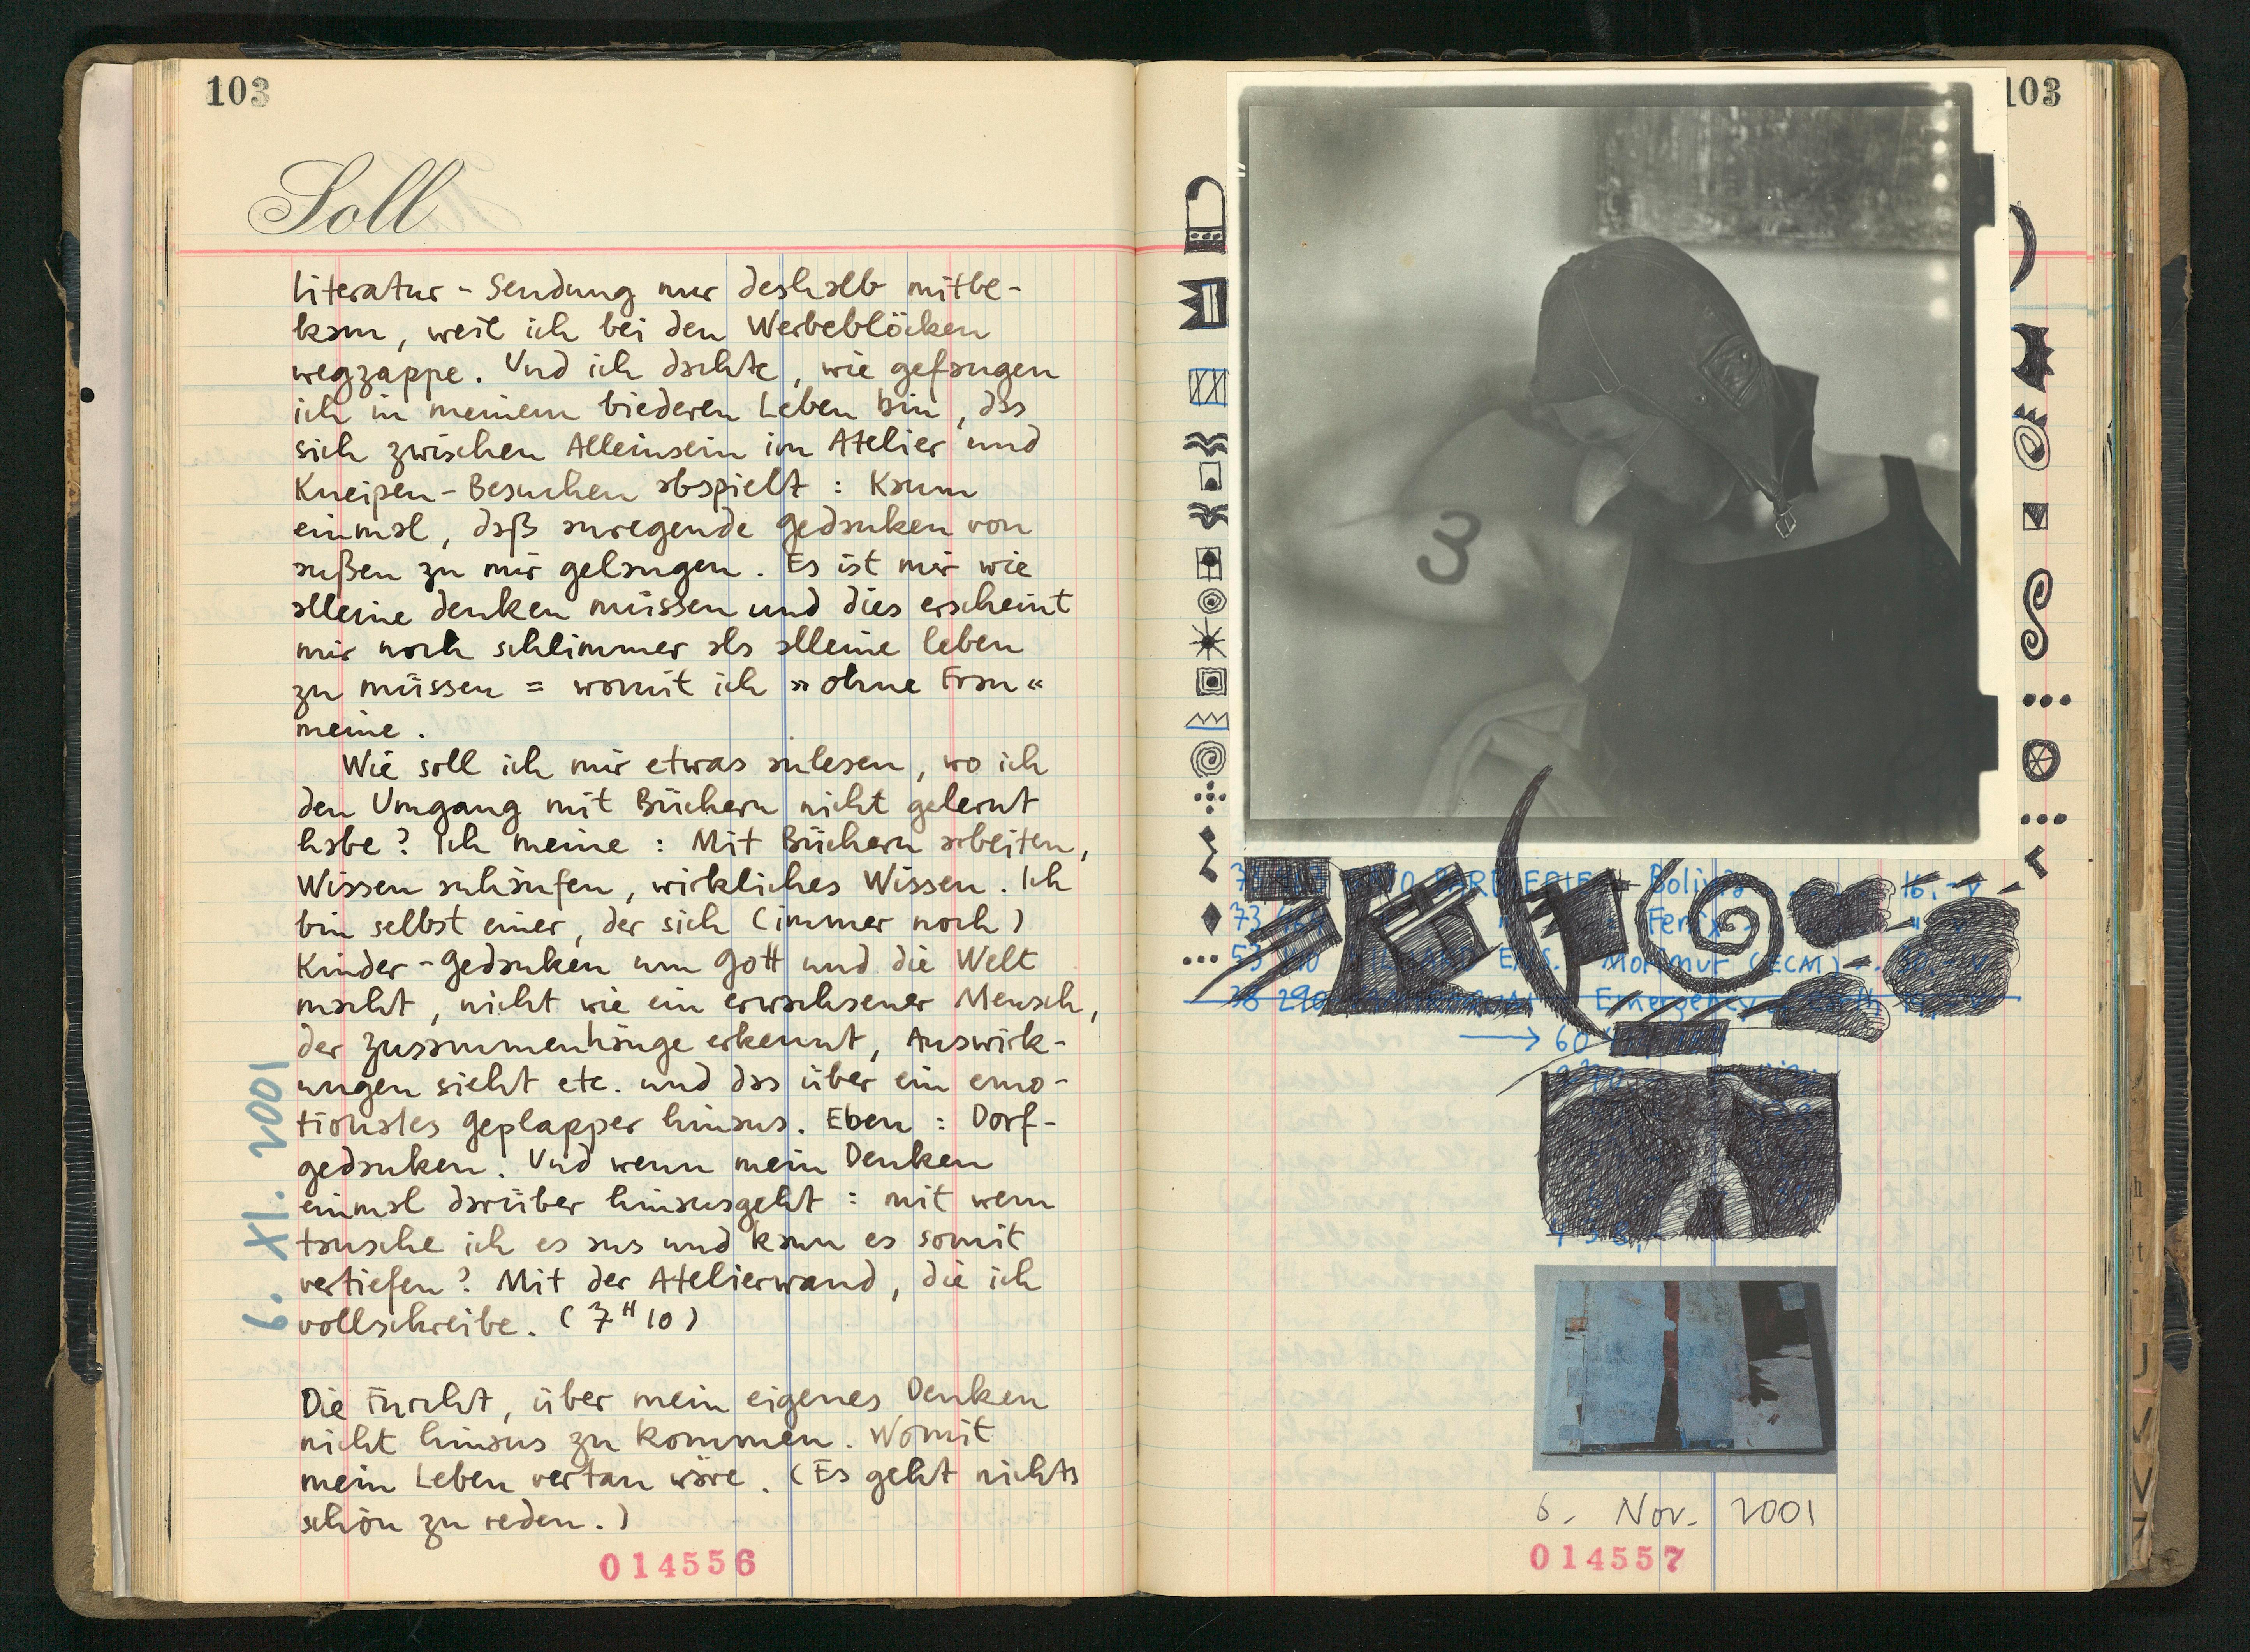 103
Soll
Literatur-Sendung nur deshalb mitbe-
kam, weil ich bei den Werbeblöcken
wegzappe. Und ich dachte, wie gefangen
ich in meinem biederen Leben bin, das
sich zwischen Alleinsein im Atelier und
Kneipen-Besuchen abspielt : Kaum
einmal, daß anregende Gedanken von
außen zu mir gelangen. Es ist mir wie
alleine denken müssen und dies erscheint
mir noch schlimmer als alleine leben
zu müssen = womit ich »ohne Frau«
meine.
Wie soll ich mir etwas anlesen, wo ich
den Umgang mit Büchern nicht gelernt
habe? Ich meine : Mit Büchern arbeiten,
Wissen anhäufen, wirkliches Wissen. Ich
bin selbst einer, der sich (immer noch)
Kinder-Gedanken um Gott und die Welt
macht, nicht wie ein erwachsener Mensch,
der Zusammenhänge erkennt, Auswirk-
ungen sieht etc. und das über ein emo-
tionales Geplapper hinaus. Eben : Dorf-
gedanken. Und wenn mein Denken
einmal darüber hinausgeht : mit wem
tausche ich es aus und kann es somit
vertiefen? Mit der Atelierwand, die ich
vollschreibe. (7 H 10)
6. XI. 2001
Die Furcht, über mein eigenes Denken
nicht hinaus zu kommen. Womit
mein Leben vertan wäre. (Es geht nichts
schön zu reden.)
014556
103
3
Bolivia 16.-
73 Fenix "
53 Mormur (ECM)
38 290 Emergency
→ 60
6. Nov. 2001
014557